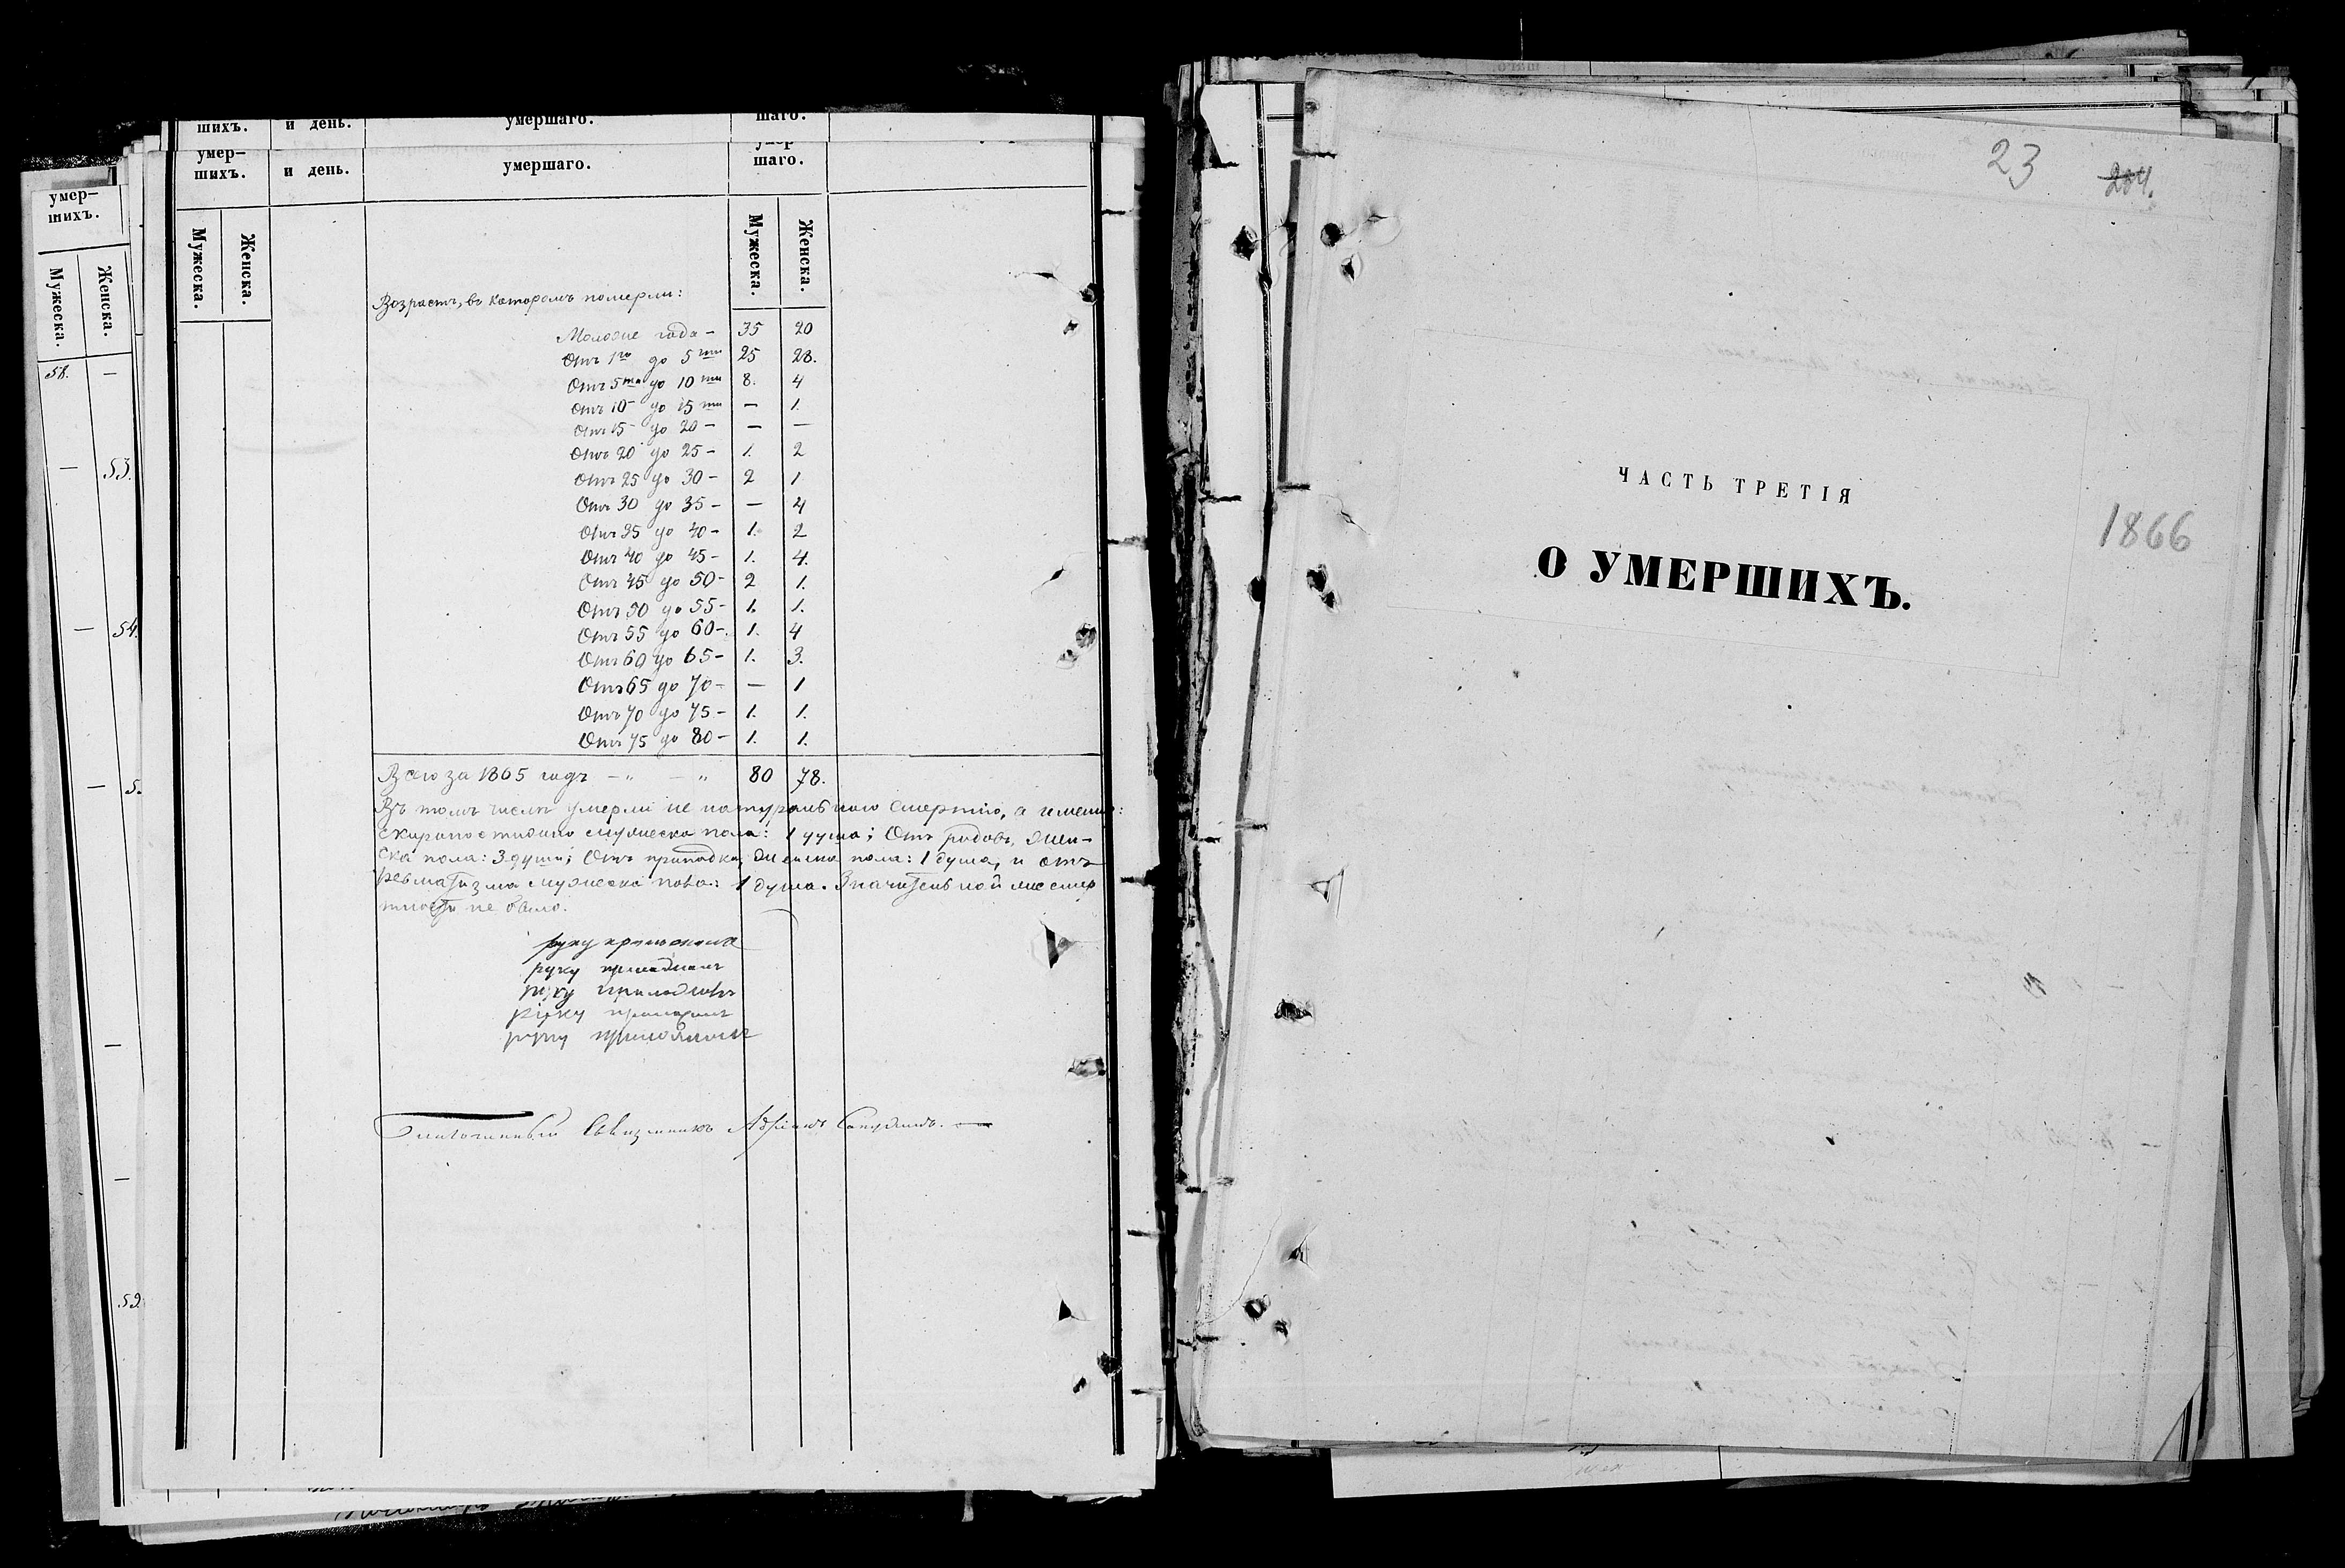 шихъ.
и день.
умершаго.
шаго.
умер-
шихъ.
и день.
умершаго.
умер
шаго.
умер-
шихъ.
Мужеска.
Женска.
Мужеска.
Женска.
Мужеска.
Женска.
58. —
— 53.
— 54.
— 5.
—
—
59.
Возрастъ, въ которомъ померли:
года - 35 20
Отъ 1го до 5ти 25 28.
Отъ 5ти до 10ти 8. 4
Отъ 10 - до 15ти — 1.
Отъ 15 - до 20 - — —
Отъ 20 до 25 - 1. 2
Отъ 25 до 30 - 2 1
Отъ 30 до 35 - — 4
Отъ 35 до 40 - 1. 2
Отъ 40 до 45 - 1. 4.
Отъ 45 до 50 - 2 1.
Отъ 50 до 55 - 1. 1.
Отъ 55 до 60 -. 1. 4
Отъ 60 до 65 - 1. 3.
Отъ 65 до 70 - — 1
Отъ 70 до 75 - 1. 1.
Отъ 75 до 80 - 1. 1.
Всего за 1865 годъ — „ — „ 80 78.
Въ томъ числѣ умерли не натуральною смертію, а именно:
скоропостижно мужеска пола: 1 душа; Отъ родовъ, жен-
ска пола: 3 души; Отъ припадка, женска пола: 1 душа, и отъ
ревматизма мужеска пола: 1 душа. Значительной же смер
тности не было.
руку приложилъ
руку приложилъ
руку приложилъ
руку приложилъ
руку приложилъ
Священникъ
23
204.
ЧАСТЬ ТРЕТІЯ
1866
О УМЕРШИХЪ.